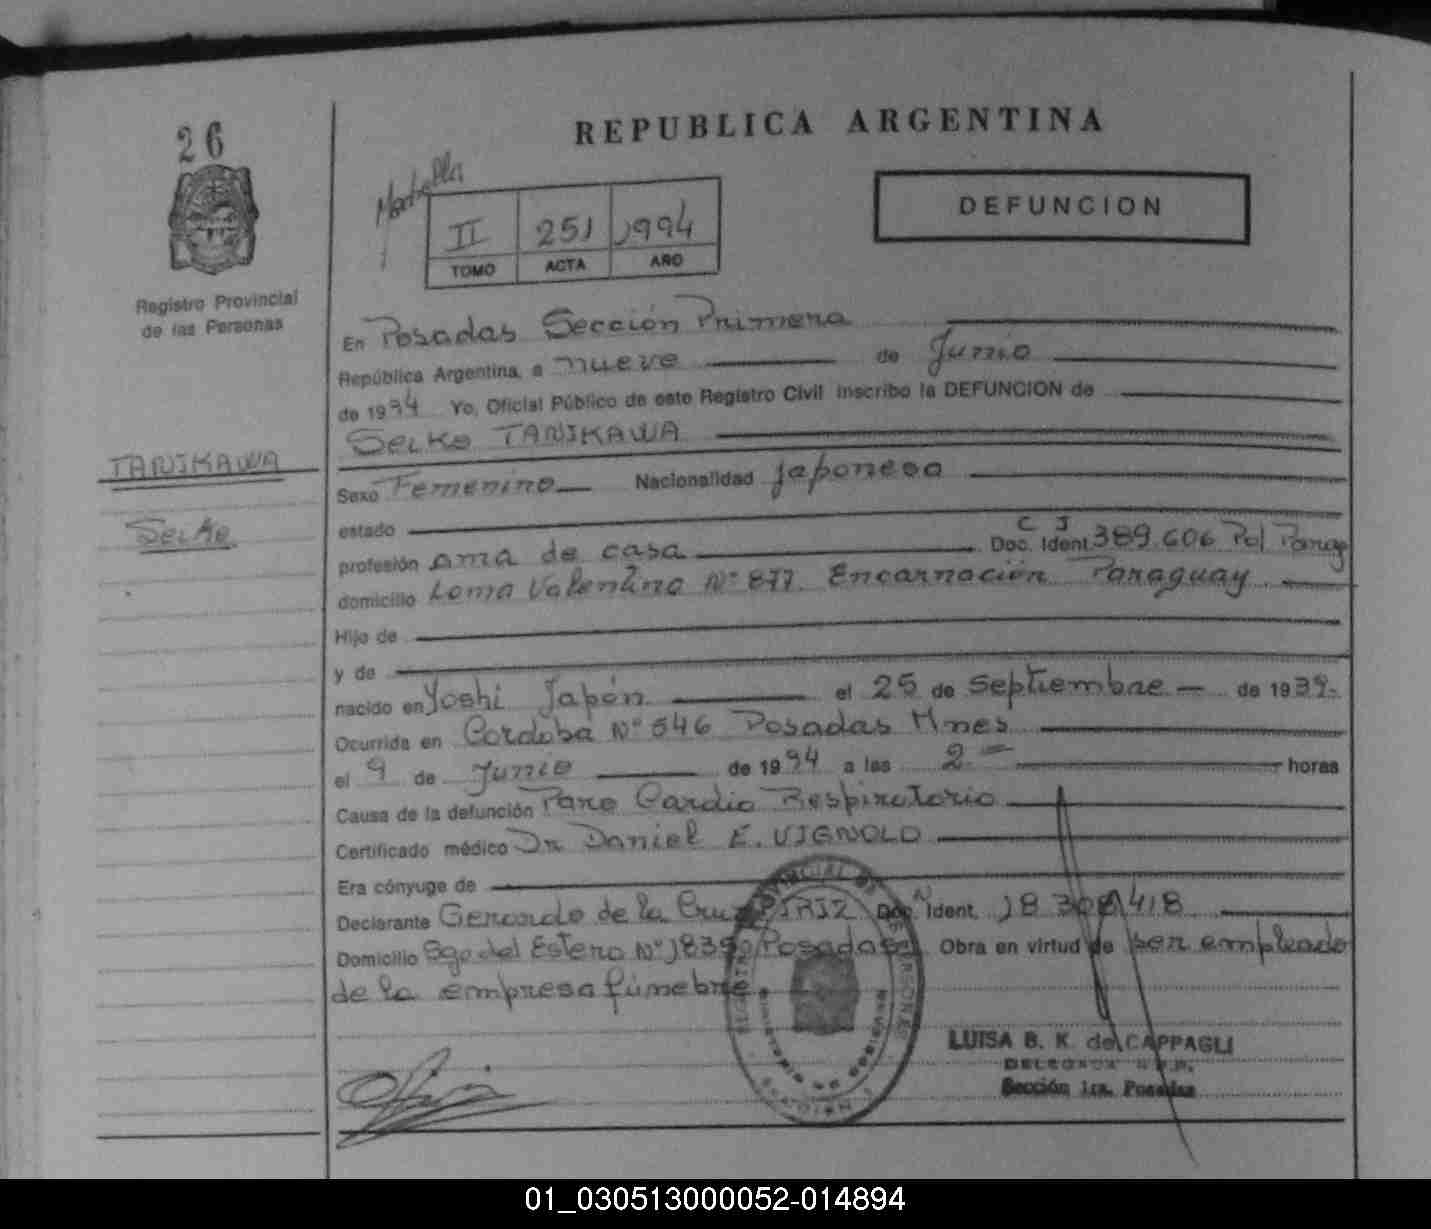 26
REPUBLICA ARGENTINA
DEFUNCION
II 251 1994
TOMO ACTA AÑO
Registro Provincial
de las Personas
En Posadas Sección Primera
República Argentina, a nueve de Junio
de 1994 Yo, Oficial Público de este Registro Civil inscribo la DEFUNCION de
Seiko TANIKAWA
TANIKAWA
Sexo Femenino Nacionalidad japonesa
Seiko
estado
C I
profesión ama de casa Doc. Ident. 389.606 Pol Parag
domicilio Loma Valentina Nº 877. Encarnación Paraguay
Hijo de
y de
nacido en Yoshi Japón el 25 de Septiembre de 1939.
Ocurrida en Cordoba Nº 546 Posadas Mnes
el 9 de Junio de 1994 a las 2 horas
Causa de la defunción Paro Cardio Respiratorio
Certificado médico Dr. Daniel E. VIGNOLO
Era cónyuge de
Declarante Gerardo de la Cruz PIRIZ Doc. Ident. 18.308.418
Domicilio Sgo del Estero Nº 1835 Posadas Obra en virtud de ser empleado
de la empresa fúnebre
LUISA B. K. de CAPPAGLI
DELEGADA R.P.P.
Sección 1ra. Posadas
01_030513000052-014894